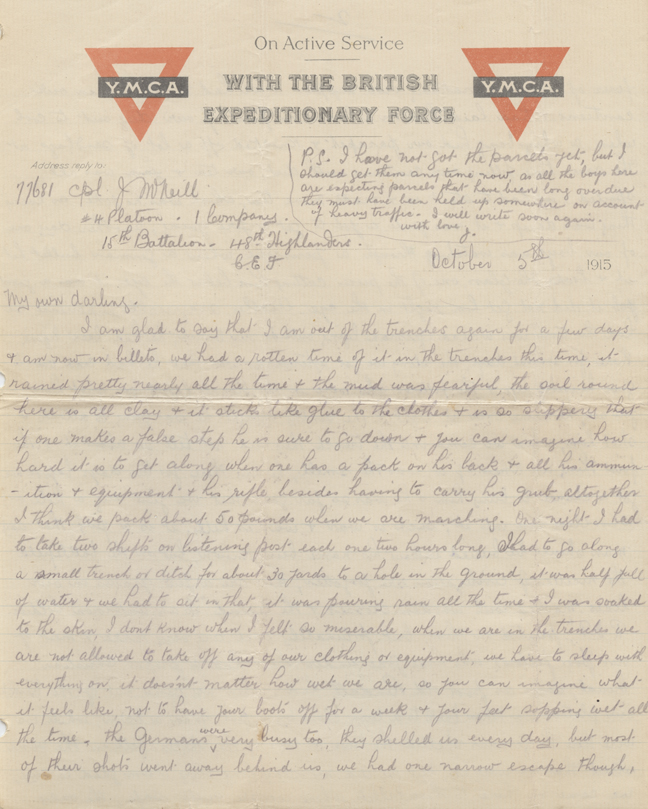 On Active Service
WITH THE BRITISH
EXPEDITIONARY FORCE
Y.M.C.A.
Y.M.C.A.
Address reply to:
77681 Cpl. J McNeill.
#4 Platoon. 1 Company.
15th Battalion. 48th Highlanders.
C.E.F
P.S. I have not got the parcels yet, but I
should get them any time now, as all the boys here
are expecting parcels that have been long overdue
they must have been held up somewhere on account
of heavy traffic. I will write soon again.
with love J.
October 5th 1915
My own darling.
I am glad to say that I am out of the trenches again for a few days
+ am now in billets, we had a rotten time of it in the trenches this time, it
rained pretty nearly all the time + the mud was fearful, the soil round
here is all clay + it sticks like glue to the clothes + is so slippery that
if one makes a false step he is sure to go down + you can imagine how
hard it is to get along when one has a pack on his back + all his ammun-
-ition + equipment + his rifle, besides having to carry his grub, altogether
I think we pack about 50 pounds when we are marching. One night I had
to take two shifts on listening post each one two hours long, I had to go along
a small trench or ditch for about 30 yards to a hole in the ground, it was half full
of water + we had to sit in that, it was pouring rain all the time + I was soaked
to the skin, I dont know when I felt so miserable, when we are in the trenches we
are not allowed to take off any of our clothing or equipment, we have to sleep with
everything on, it does'nt matter how wet we are, so you can imagine what
it feels like, not to have your boots off for a week + your feet sopping wet all
the time. the Germans were very busy too, they shelled us every day, but most
of their shots went away behind us, we had one narrow escape though,